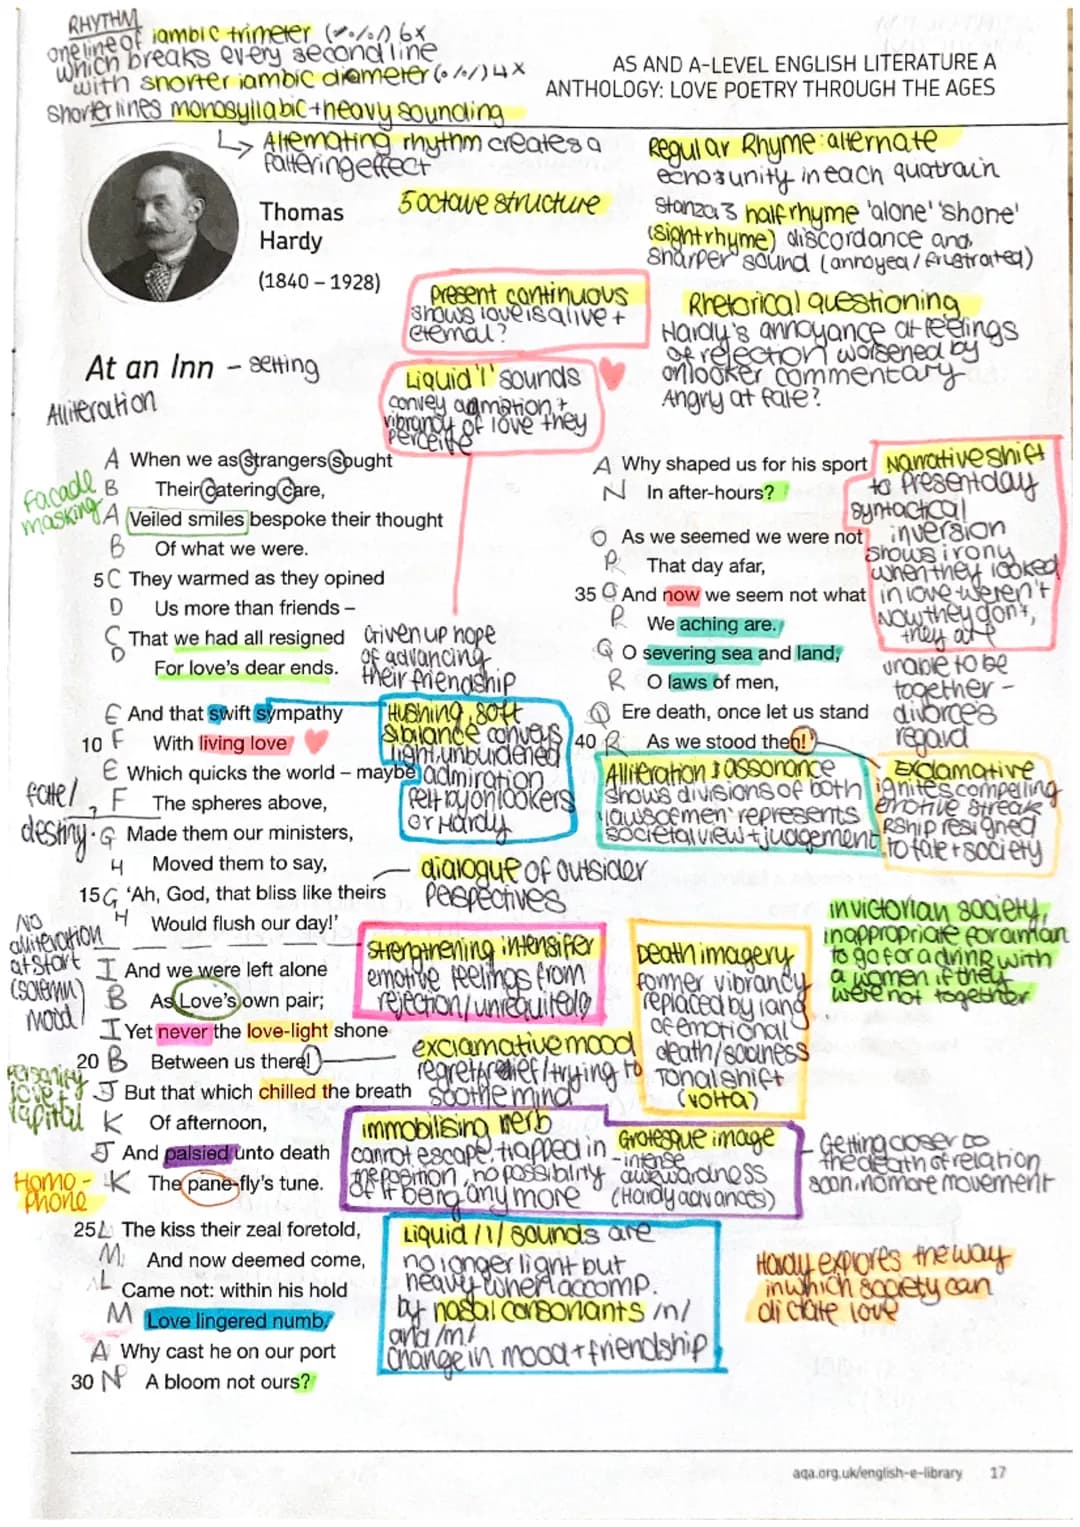 RHYTHM
one line of iambic trimeter (˘/˘/˘/) 6x
which breaks every second line
with shorter iambic diameter (˘/˘/) 4x
shorter lines monosyllabic + heavy sounding
AS AND A-LEVEL ENGLISH LITERATURE A
ANTHOLOGY: LOVE POETRY THROUGH THE AGES
↳ Alternating rhythm creates a
faltering effect
Thomas
Hardy
(1840 – 1928)
5 octave structure
Regular Rhyme: alternate
echos unity in each quatrain
Stanza 3 half rhyme 'alone' 'shone'
(sight rhyme) discordance and
sharper sound (annoyed / frustrated)
present continuous
shows love is alive +
eternal?
Rhetorical questioning
Hardy's annoyance at feelings
of rejection worsened by
onlooker commentary
Angry at fate?
At an Inn – setting
Alliteration
Liquid 'l' sounds
convey admation +
vibrancy of love they
perceive
facade
masking
A When we as strangers sought
B Their catering care,
A Veiled smiles bespoke their thought
B Of what we were.
5 C They warmed as they opined
D Us more than friends –
C That we had all resigned
D For love's dear ends.
Given up hope
of advancing
their friendship
E And that swift sympathy
10 F With living love
E Which quicks the world – maybe
F The spheres above,
G Made them our ministers,
H Moved them to say,
15 G 'Ah, God, that bliss like theirs
H Would flush our day!'
Hushing, soft
sibilance conveys
light, unburdened
admiration
felt by onlookers
or Hardy
fate/
destiny.
dialogue of outsider
perspectives
No
alliteration
at start
(solemn)
mood
I And we were left alone
B As Love's own pair;
I Yet never the love-light shone
20 B Between us there!
J But that which chilled the breath
K Of afternoon,
J And palsied unto death
K The pane-fly's tune.
strengthening intensifer
emotive feelings from
rejection/unrequited
exclamative mood
regret/relief/trying to
soothe mind
Death imagery
former vibrancy
replaced by lang
of emotional
death/sadness
Tonal shift
(volta)
personify
love +
capital
Homo-
phone
immobilising verb
cannot escape, trapped in
the position, no possibility
of it being any more
Grotesque image
-intense
awkwardness
(Hardy advances)
Getting closer to
the death of relation
soon, no more movement
25 L The kiss their zeal foretold,
M And now deemed come,
L Came not: within his hold
M Love lingered numb.
A Why cast he on our port
30 N A bloom not ours?
Liquid /l/ sounds are
no longer light but
heavy when accomp.
by nasal consonants /n/
and /m/
change in mood + friendship
A Why shaped us for his sport
N In after-hours?
O As we seemed we were not
P That day afar,
35 O And now we seem not what
P We aching are.
Q O severing sea and land,
R O laws of men,
Q Ere death, once let us stand
40 R As we stood then!
Narrative shift
to present day
syntactical
inversion
shows irony
when they looked
in love weren't
now they don't,
they are
unable to be
together -
divorces
regard
Alliteration & assonance
shows divisions of both
'laws of men' represents
societal view + judgement
Exclamative
ignites compelling
emotive streak
Rship resigned
to fate + society
in victorian society,
inappropriate for a man
to go for a drink with
a women if they
were not together
Hardy explores the way
in which society can
dictate love
aqa.org.uk/english-e-library 17